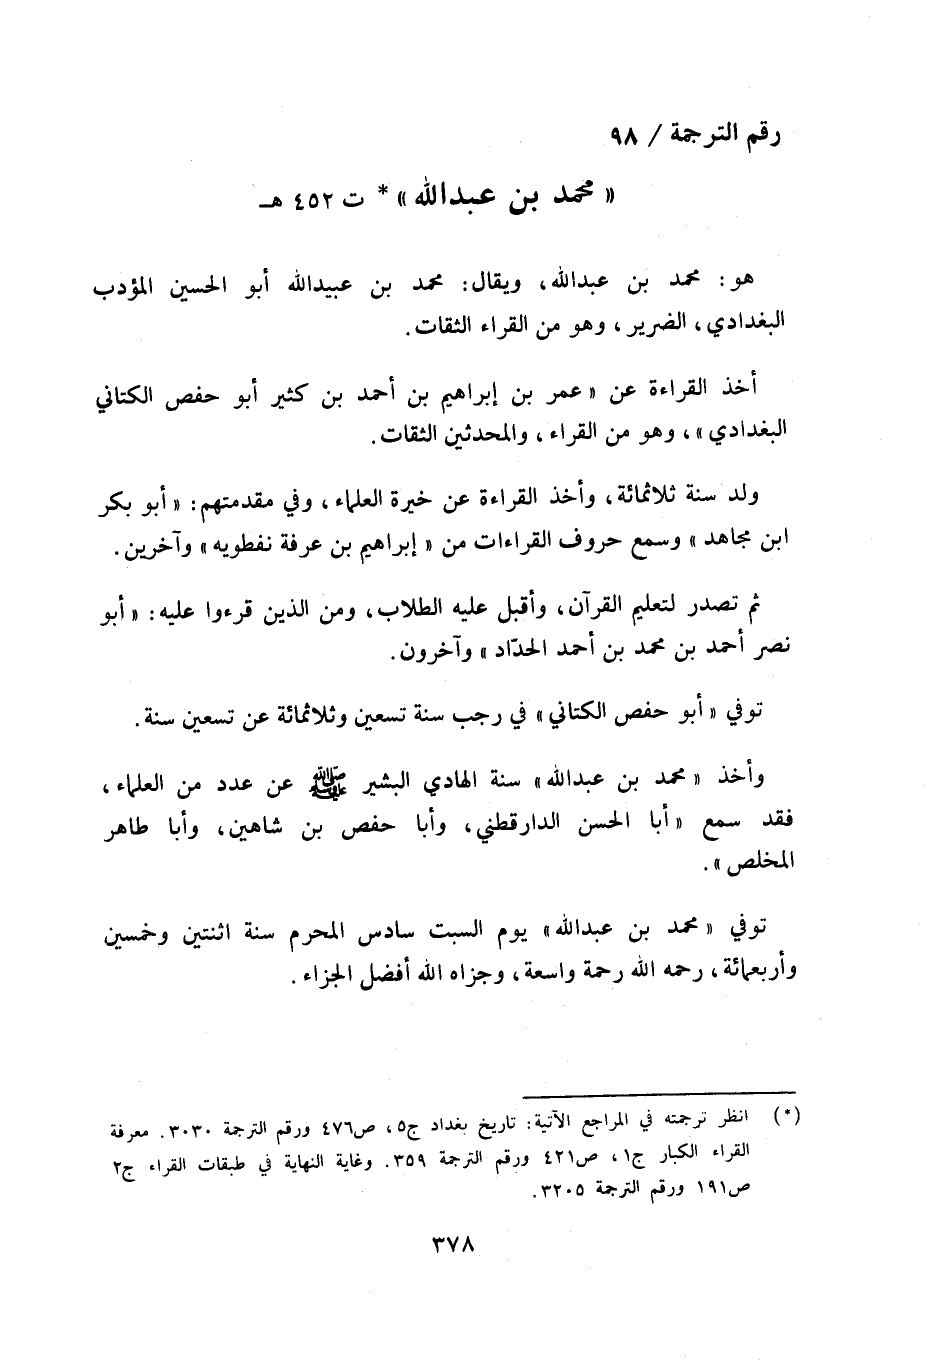 رقم الترجمة / ٩٨
« محمد بن عبدالله » * ت ٤٥٢ هـ
هو : محمد بن عبدالله ، ويقال : محمد بن عبيدالله أبو الحسين المؤدب
البغدادي ، الضرير ، وهو من القراء الثقات .
أخذ القراءة عن « عمر بن إبراهيم بن أحمد بن كثير أبو حفص الكتاني
البغدادي » ، وهو من القراء ، والمحدثين الثقات .
ولد سنة ثلاثمائة ، وأخذ القراءة عن خيرة العلماء ، وفي مقدمتهم : « أبو بكر
ابن مجاهد » وسمع حروف القراءات من « إبراهيم بن عرفة نفطويه » وآخرين .
ثم تصدر لتعليم القرآن ، وأقبل عليه الطلاب ، ومن الذين قرءوا عليه : « أبو
نصر أحمد بن محمد بن أحمد الحدّاد » وآخرون .
توفي « أبو حفص الكتاني » في رجب سنة تسعين وثلاثمائة عن تسعين سنة .
وأخذ « محمد بن عبدالله » سنة الهادي البشير ﷺ عن عدد من العلماء ،
فقد سمع « أبا الحسن الدارقطني ، وأبا حفص بن شاهين ، وأبا طاهر
المخلص » .
توفي « محمد بن عبدالله » يوم السبت سادس المحرم سنة اثنتين وخمسين
وأربعمائة ، رحمه الله رحمة واسعة ، وجزاه الله أفضل الجزاء .
(*) انظر ترجمته في المراجع الآتية : تاريخ بغداد ج٥ ، ص٤٧٦ ورقم الترجمة ٣٠٣٠ . معرفة
القراء الكبار ج١ ، ص٤٢١ ورقم الترجمة ٣٥٩ . وغاية النهاية في طبقات القراء ج٢
ص١٩١ ورقم الترجمة ٣٢٠٥ .
٣٧٨